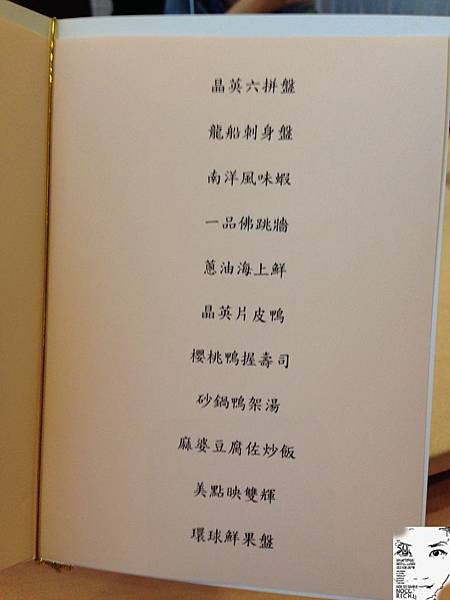 晶英六拼盤
龍船刺身盤
南洋風味蝦
一品佛跳牆
蔥油海上鮮
晶英片皮鴨
櫻桃鴨握壽司
砂鍋鴨架湯
麻婆豆腐佐炒飯
美點映雙輝
環球鮮果盤